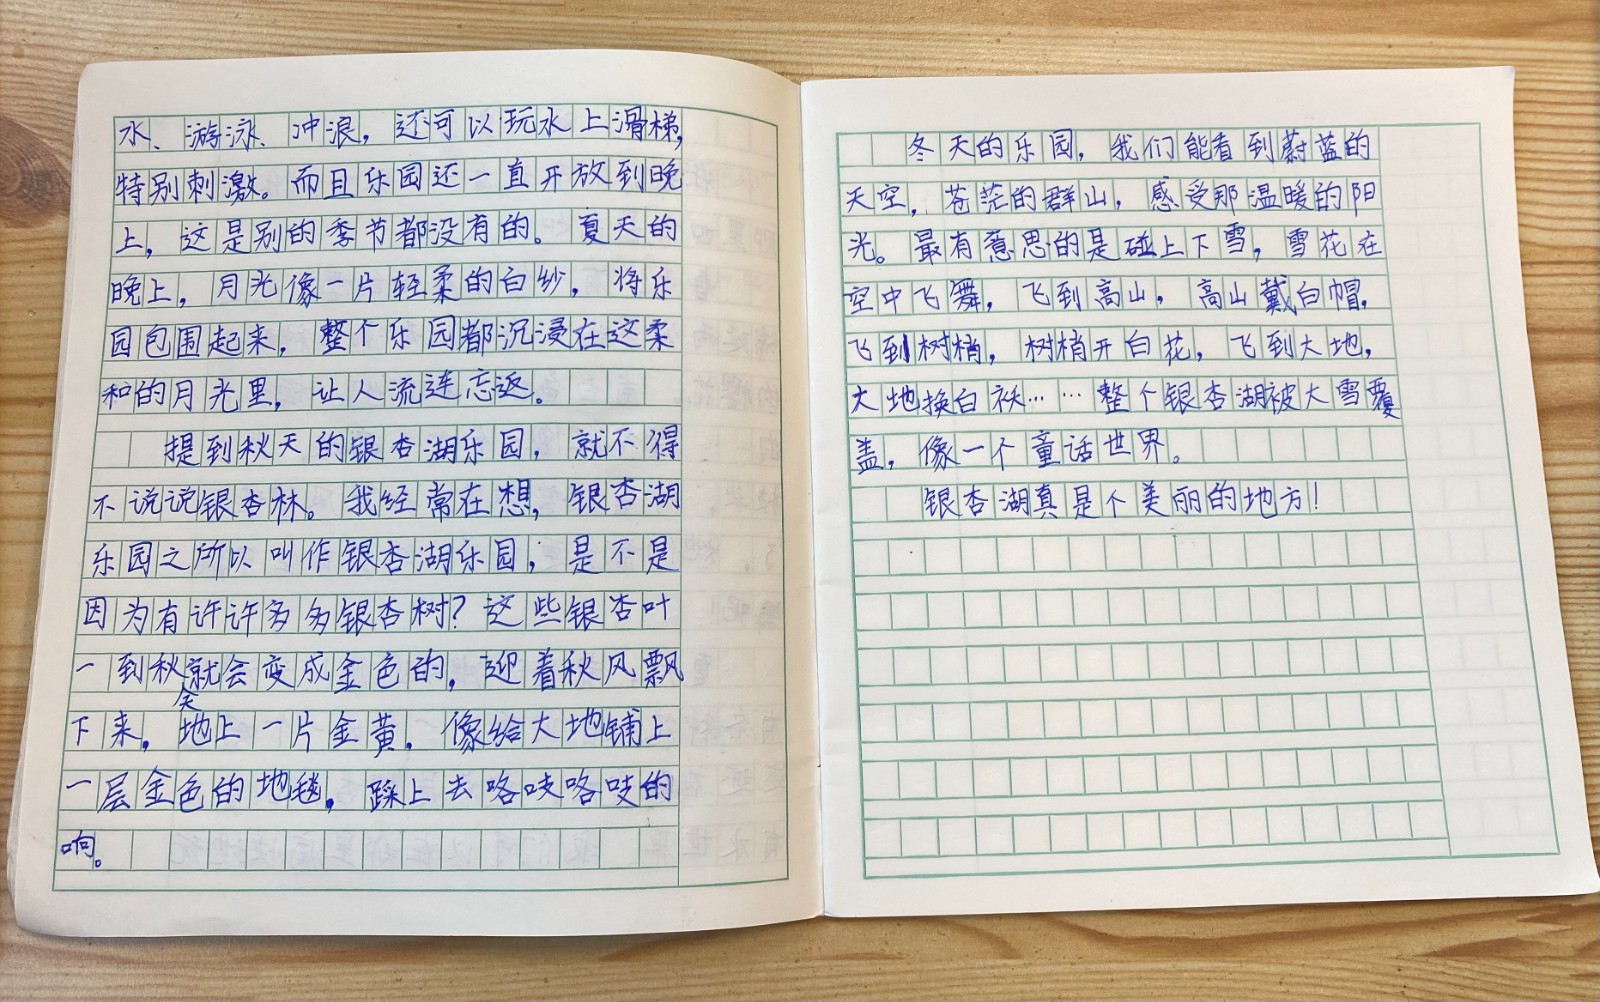 水、游泳、冲浪，还可以玩水上滑梯，
特别刺激。而且乐园还一直开放到晚
上，这是别的季节都没有的。夏天的
晚上，月光像一片轻柔的白纱，将乐
园包围起来，整个乐园都沉浸在这柔
和的月光里，让人流连忘返。
提到秋天的银杏湖乐园，就不得
不说说银杏林。我经常在想，银杏湖
乐园之所以叫作银杏湖乐园，是不是
因为有许许多多银杏树？这些银杏叶
一到秋天就会变成金色的，迎着秋风飘
下来，地上一片金黄，像给大地铺上
一层金色的地毯，踩上去咯吱咯吱的
响。
冬天的乐园，我们能看到蔚蓝的
天空，苍茫的群山，感受那温暖的阳
光。最有意思的是碰上下雪，雪花在
空中飞舞，飞到高山，高山戴白帽，
飞到树梢，树梢开白花，飞到大地，
大地换白袄……整个银杏湖被大雪覆
盖，像一个童话世界。
银杏湖真是个美丽的地方！